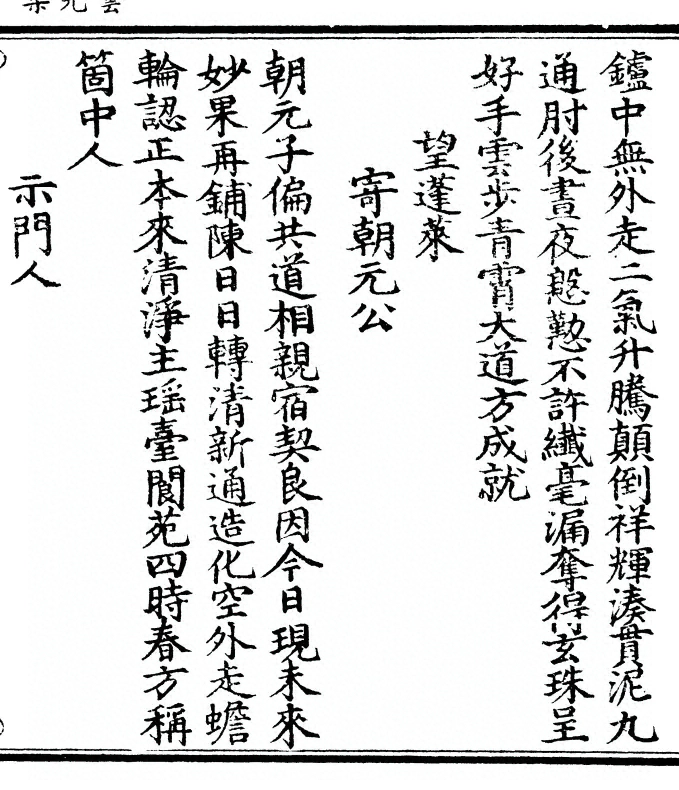 鑪中無外走二氣升騰顛倒祥輝湊貫泥丸
通肘後晝夜慇懃不許纖毫漏奪得玄珠呈
好手雲步青霄大道方成就
望蓬萊
寄朝元公
朝元子偏共道相親宿契良因今日現未來
妙果再鋪陳日日轉清新通造化空外走蟾
輪認正本來清淨主瑶臺閬苑四時春方稱
箇中人
示門人